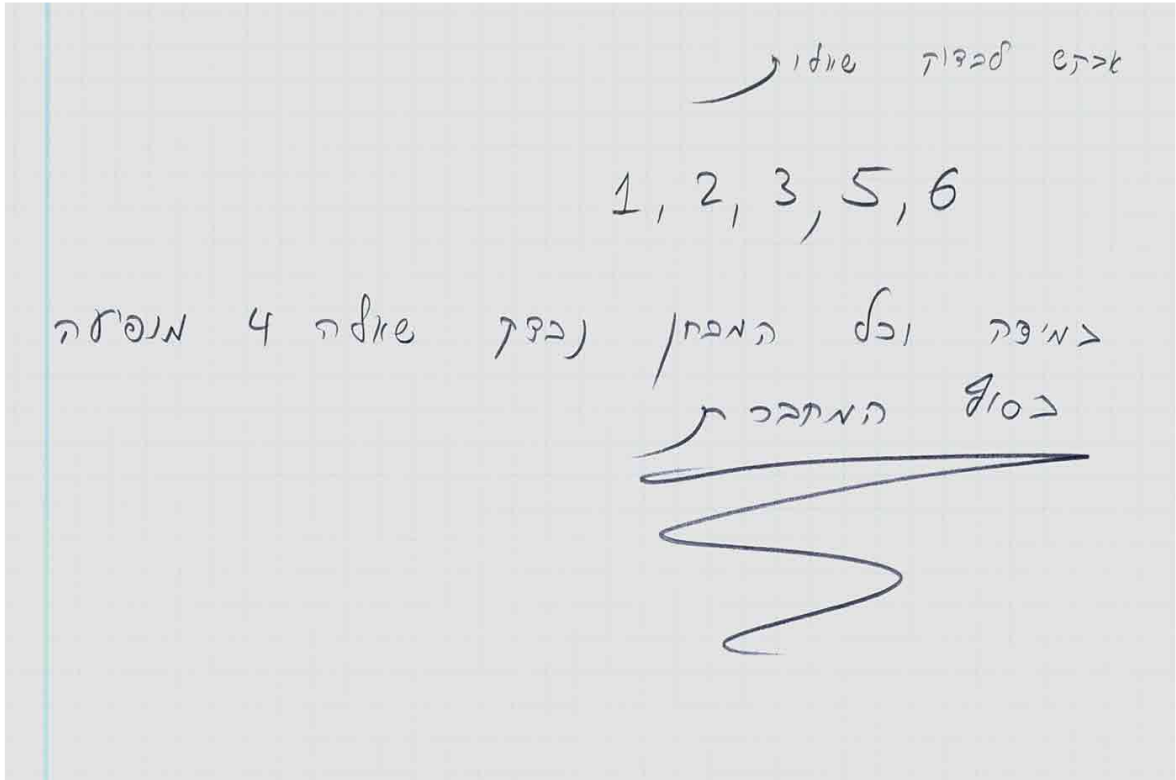 אבקש לבדוק שאלות
1, 2, 3, 5, 6
במידה וכל המבחן נבדק שאלה 4 מופיעה
בסוף המחברת